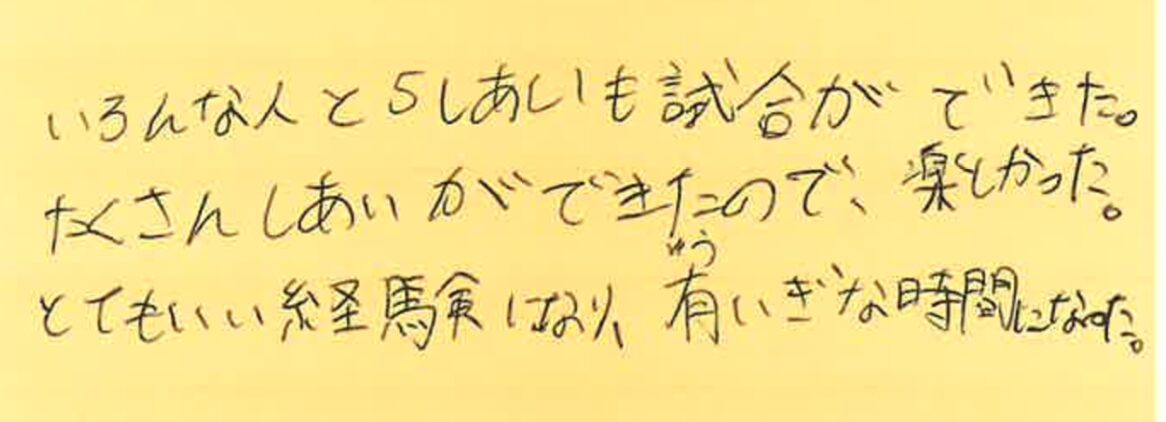 いろんな人と5しあいも試合ができた。
たくさんしあいができたので、楽しかった。
とてもいい経験になり、有いぎな時間になった。
ゆう